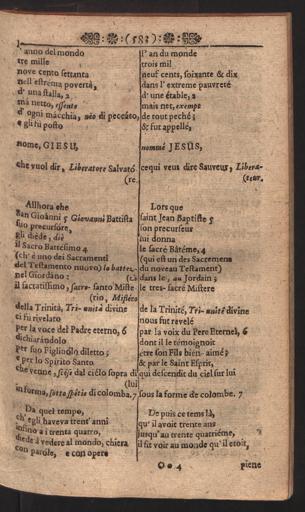 (583)
l' anno del mondo
tre mille
nove cento settanta
nell'estrema povertà,
d' una stalla, 2
mà netto, essente
d' ogni macchia, nèo di peccàto,
e gli fù posto
nome, GIESU,
che vuol dir, Liberatore Salvató
(re.
Allhora che
San Gioánni 5 Giovanni Battista
suo precursóre,
gli diède, diè
il Sacro Battésimo 4
(ch' è uno dei Sacramenti
del Testamento nuovo) lo battez-
nel Giordàno: (ò
il sacratissimo, sacro-santo Miste-
(rio, Mistéro
della Trinità, Tri-unità divine
ci fù rivelato
per la voce del Padre eterno, 6
dichiarándolo
per suo Figliuólo diletto;
e per lo Spírito Santo
che venne, scése dal ciélo sopra di
(lui
in forma, sotto spétie di colomba. 7
Da quel tempo,
ch' egli haveva trent' anni
infino a i trenta quatro,
diede à vedere al mondo, chiera
con parole, e con opere
l' an du monde
trois mil
neuf cents, soixante & dix
dans l' extreme pauvreté
d' une étable, 2
mais net, exempt
de tout peché;
& fut appellé,
nommé JESUS,
ce qui veut dire Sauveur, Libera-
(teur.
Lors que
saint Jean Baptiste 5
son precurseur
lui donna
le sacré Bâtéme, 4
(qui est un des Sacremens
du noveau Testament)
dans le, au Jordain;
le tres-sacré Mistere
de la Trinité, Tri-unité divine
nous fut revelé
par la voix du Pere Eternel, 6
dont il le témoignoit
étre son Fils bien-aimé;
& par le Saint Esprit,
qui descendit du ciel sur lui
sous la forme de colombe. 7
De puis ce tems là,
qu' il avoit trente ans
jusqu' au trente quatriéme,
il fit voir au monde qu' il etoit,
O o 4
piene